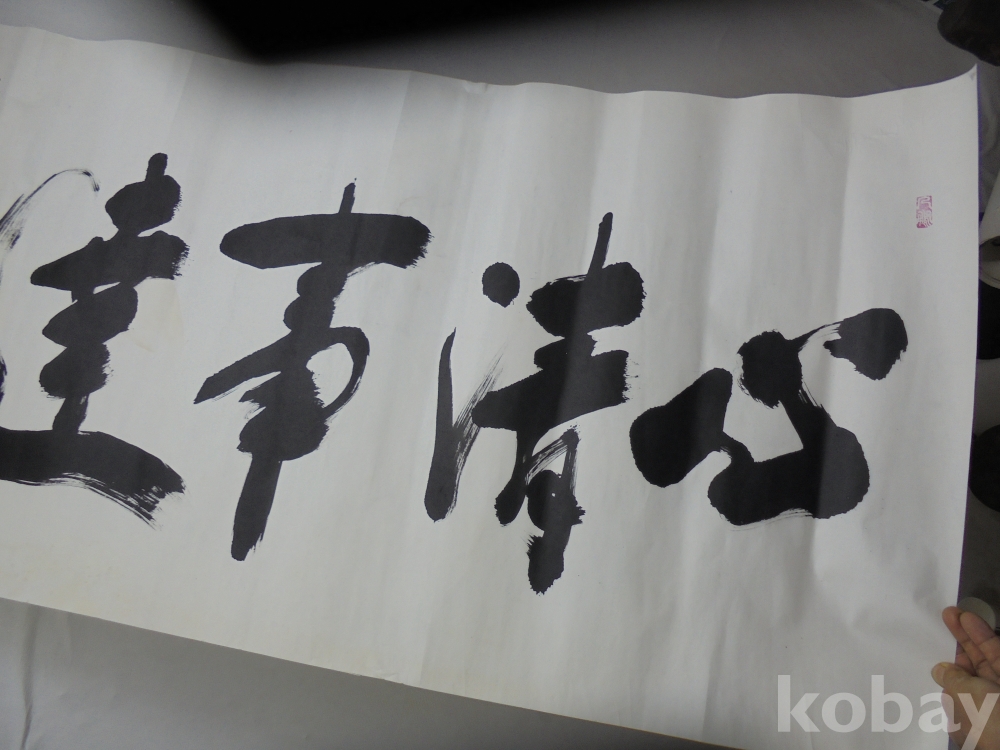 心清事達
kobay